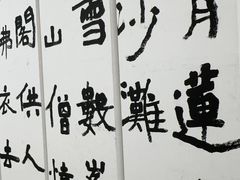 月蓮
沙灘
雪數
山僧情
閣供人
衣去